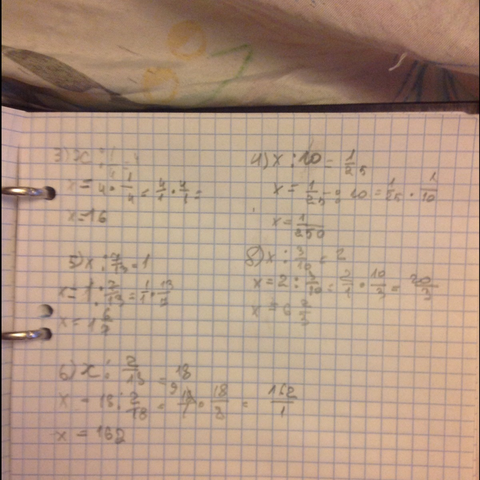 3) x :
x = 4 : 1/4 = 4/1 · 4/1 =
x = 16
4) x : 10 = 1/25
x = 1/25 : 10 = 1/25 · 1/10
x = 1/250
5) x : 7/13 = 1
x = 1 : 7/13 = 1/1 · 13/7
x = 1 6/7
8) x : 3/10 = 2
x = 2 : 3/10 = 2/1 · 10/3 = 20/3
x = 6 2/3
6) x : 2/18 = 18
x = 18 : 2/18 = 18/1 · 18/2 = 162/1
x = 162